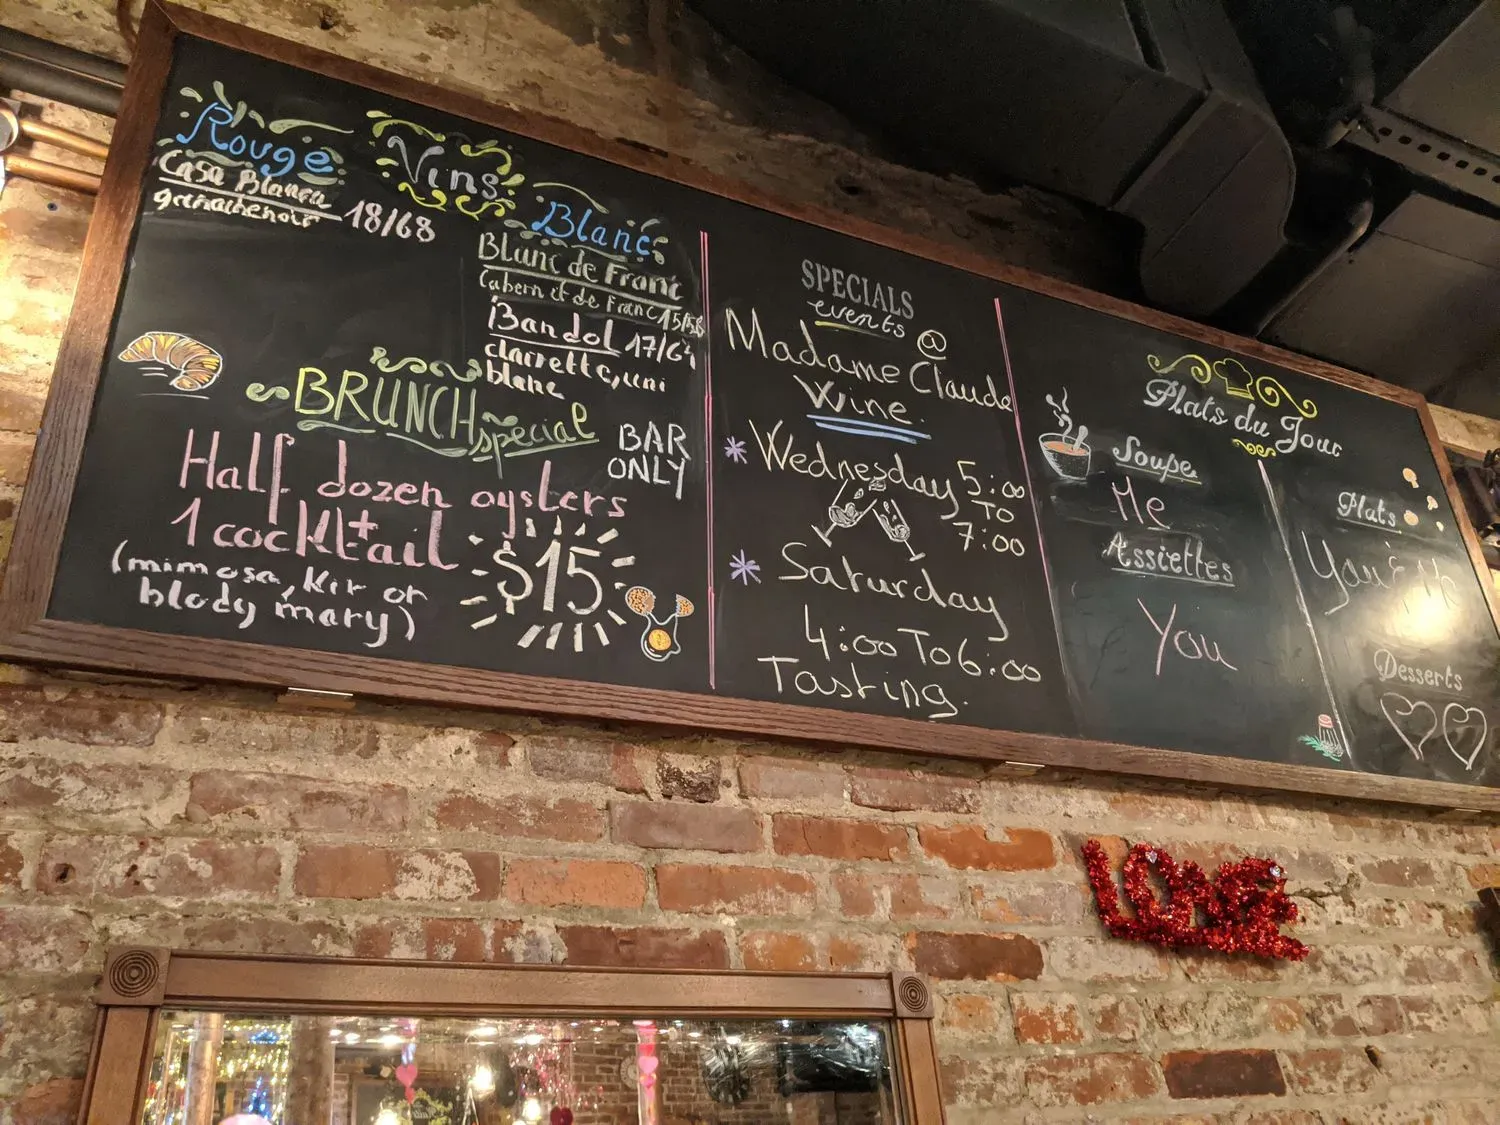 Rouge
Casa Blanca
grenachenoir 18/68
Vins
Blanc
Blanc de Franc
Cabernet de Franc 15/58
Bandol 17/64
clairette, uni
blanc
BRUNCH special
BAR
ONLY
Half dozen oysters
+
1 cocktail
(mimosa, Kir or
blody mary)
$15
SPECIALS
events @
Madame Claude
Wine.
* Wednesday 5:00
TO
7:00
* Saturday
4:00 To 6:00
Tasting.
Plats du Jour
Soupe
Me
Assiettes
You
Plats
You & Me
Desserts
LOVE